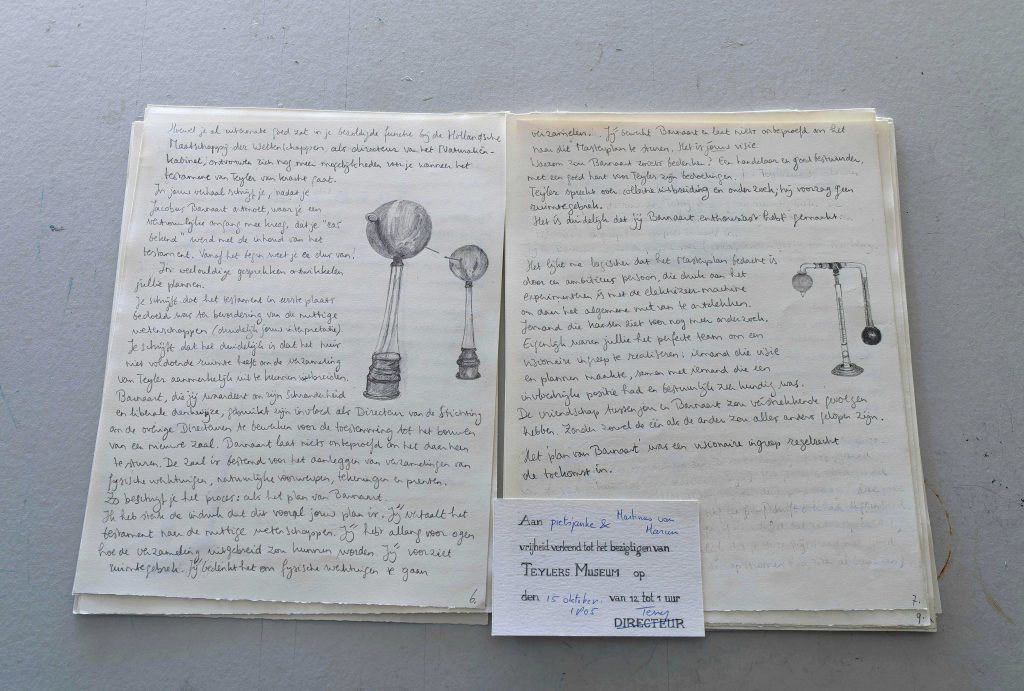 Hoewel je al uitermate goed zat in je bezoldigde functie bij de Hollandsche
Maatschappij der Wetenschappen als directeur van het Naturaliën-
kabinet, ontvouwen zich nog meer mogelijkheden voor je wanneer het
testament van Teyler van kracht gaat.
In jouw verhaal schrijf je, nadat je
Jacobus Barnaart ontmoet, waar je een
vertrouwelijke omgang mee kreeg, dat je "ras
bekend" werd met de inhoud van het
testament. Vanaf het begin weet je er dus van!
In veelvuldige gesprekken ontwikkelen
jullie plannen.
Je schrijft dat het testament in eerste plaats
bedoeld was ter bevordering van de nuttige
wetenschappen (duidelijk jouw interpretatie).
Je schrijft dat het duidelijk is dat het huis
niet voldoende ruimte heeft om de verzameling
van Teyler aanmerkelijk uit te kunnen uitbreiden.
Barnaart, die jij waardeert om zijn schranderheid
en liberale denkwijze, gebruikt zijn invloed als Directeur van de Stichting
om de overige Directeuren te bewerken voor de toestemming tot het bouwen
van een nieuwe zaal. Barnaart laat niets onbeproefd om het daarheen
te sturen. De zaal is bestemd voor het aanleggen van verzamelingen van
fysische werktuigen, natuurlijke voorwerpen, tekeningen en prenten.
Zo beschrijf je het proces: als het plan van Barnaart.
Ik heb sterk de indruk dat dit vooral jouw plan is. Jij vertaalt het
testament naar de nuttige wetenschappen. Jij hebt allang voor ogen
hoe de verzameling uitgebreid zou kunnen worden. Jij voorziet
ruimtegebrek. Jij bedenkt het om fysische werktuigen te gaan
6.
verzamelen. Jij bewerkt Barnaart en laat niets onbeproefd om het
naar dit Masterplan te sturen. Het is jouw visie
Waarom zou Barnaart zoiets bedenken? Een handelaar en goed bestuurder,
met een goed hart voor Teyler zijn bedoelingen.
Teyler sprak over collectie uitbreiding en onderzoek; hij voorzag geen
ruimtegebrek.
Het is duidelijk dat jij Barnaart enthousiast hebt gemaakt.
Het lijkt me logischer dat het Masterplan bedacht is
door een ambitieus persoon, die druk aan het
experimenteren is met de elektrizeer-machine
om daar het algemene nut van te ontdekken.
Iemand die kansen ziet voor nog meer onderzoek.
Eigenlijk waren jullie het perfecte team om een
visionaire ingreep te realiseren: iemand die visie
en plannen maakte, samen met iemand die een
invloedrijke positie had en bestuurlijk zeer kundig was.
De vriendschap tussen jou en Barnaart zou verstrekkende gevolgen
hebben. Zonder zowel de één als de ander zou alles anders gelopen zijn.
'Het plan van Barnaart' was een visionaire ingreep regelrecht
de toekomst in.
7.
9.
Aan pietsjanke & Martinus van Marum
vrijheid verleend tot het bezigtigen van
TEYLERS MUSEUM op
den 15 oktober 1805 van 12 tot 1 uur
DIRECTEUR